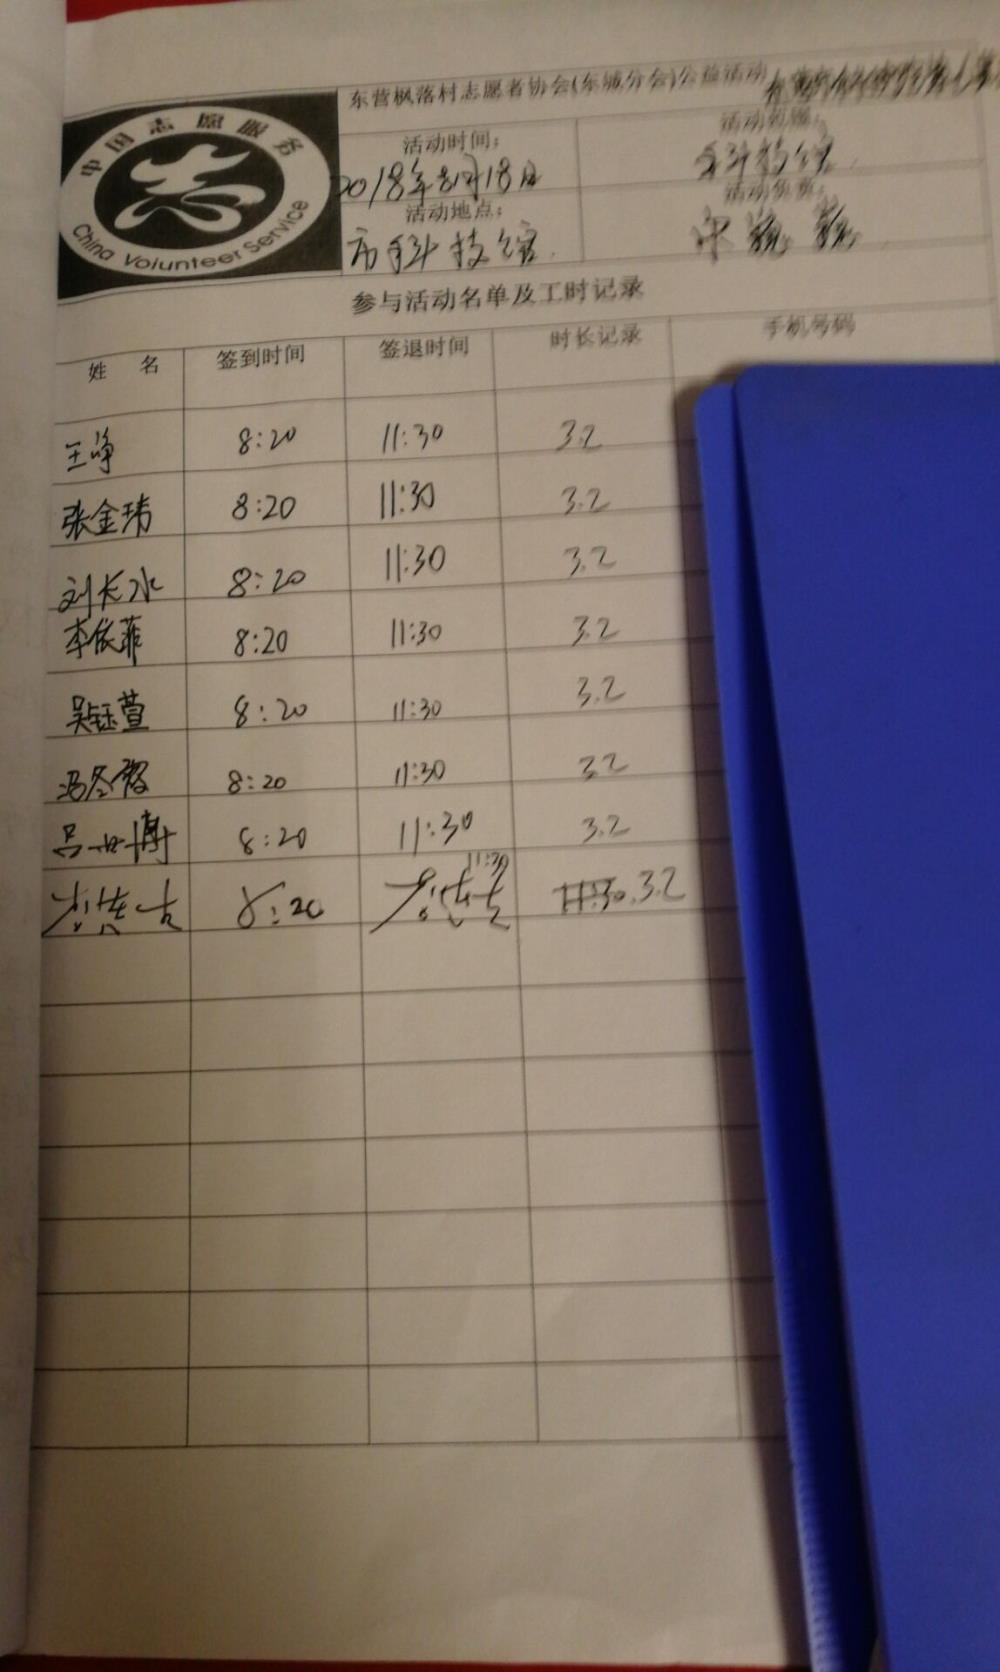 东营枫落村志愿者协会(东城分会)公益活动
中国志愿服务
China Volunteer Service
活动时间：
2018年8月18日
活动地点：
市科技馆
活动负责：
参与活动名单及工时记录
姓 名 签到时间 签退时间 时长记录 手机号码
王峥 8:20 11:30 3.2
张金玮 8:20 11:30 3.2
刘长水 8:20 11:30 3.2
李依菲 8:20 11:30 3.2
吴钰萱 8:20 11:30 3.2
冯冬霞 8:20 11:30 3.2
吕世博 8:20 11:30 3.2
8:20 11:30 11:30 3.2